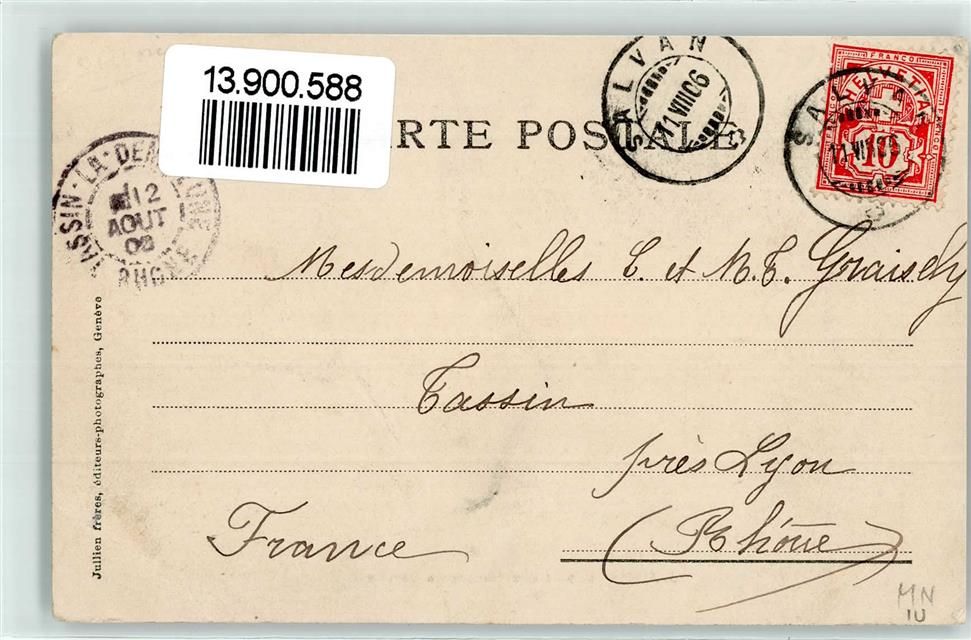 13.900.588
RTE POSTALE
SALVAN
11 VIII 06
SALVAN
HELVETIA
FRANCO
10
SSIN-LA-DEMI
12
AOUT
06
RHONE
Mesdemoiselles C. et M. T. Graisely
Tassin
près Lyon
France
(Rhône)
Jullien frères, éditeurs-photographes, Genève
MN